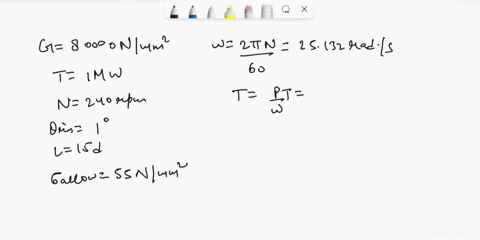 G = 80000 N/mm²
T = 1 MW
N = 240 rpm
θris = 1°
L = 15d
6allow = 55 N/mm²
W = 2πN/60 = 25.132 rad/s
T = P/ω T =